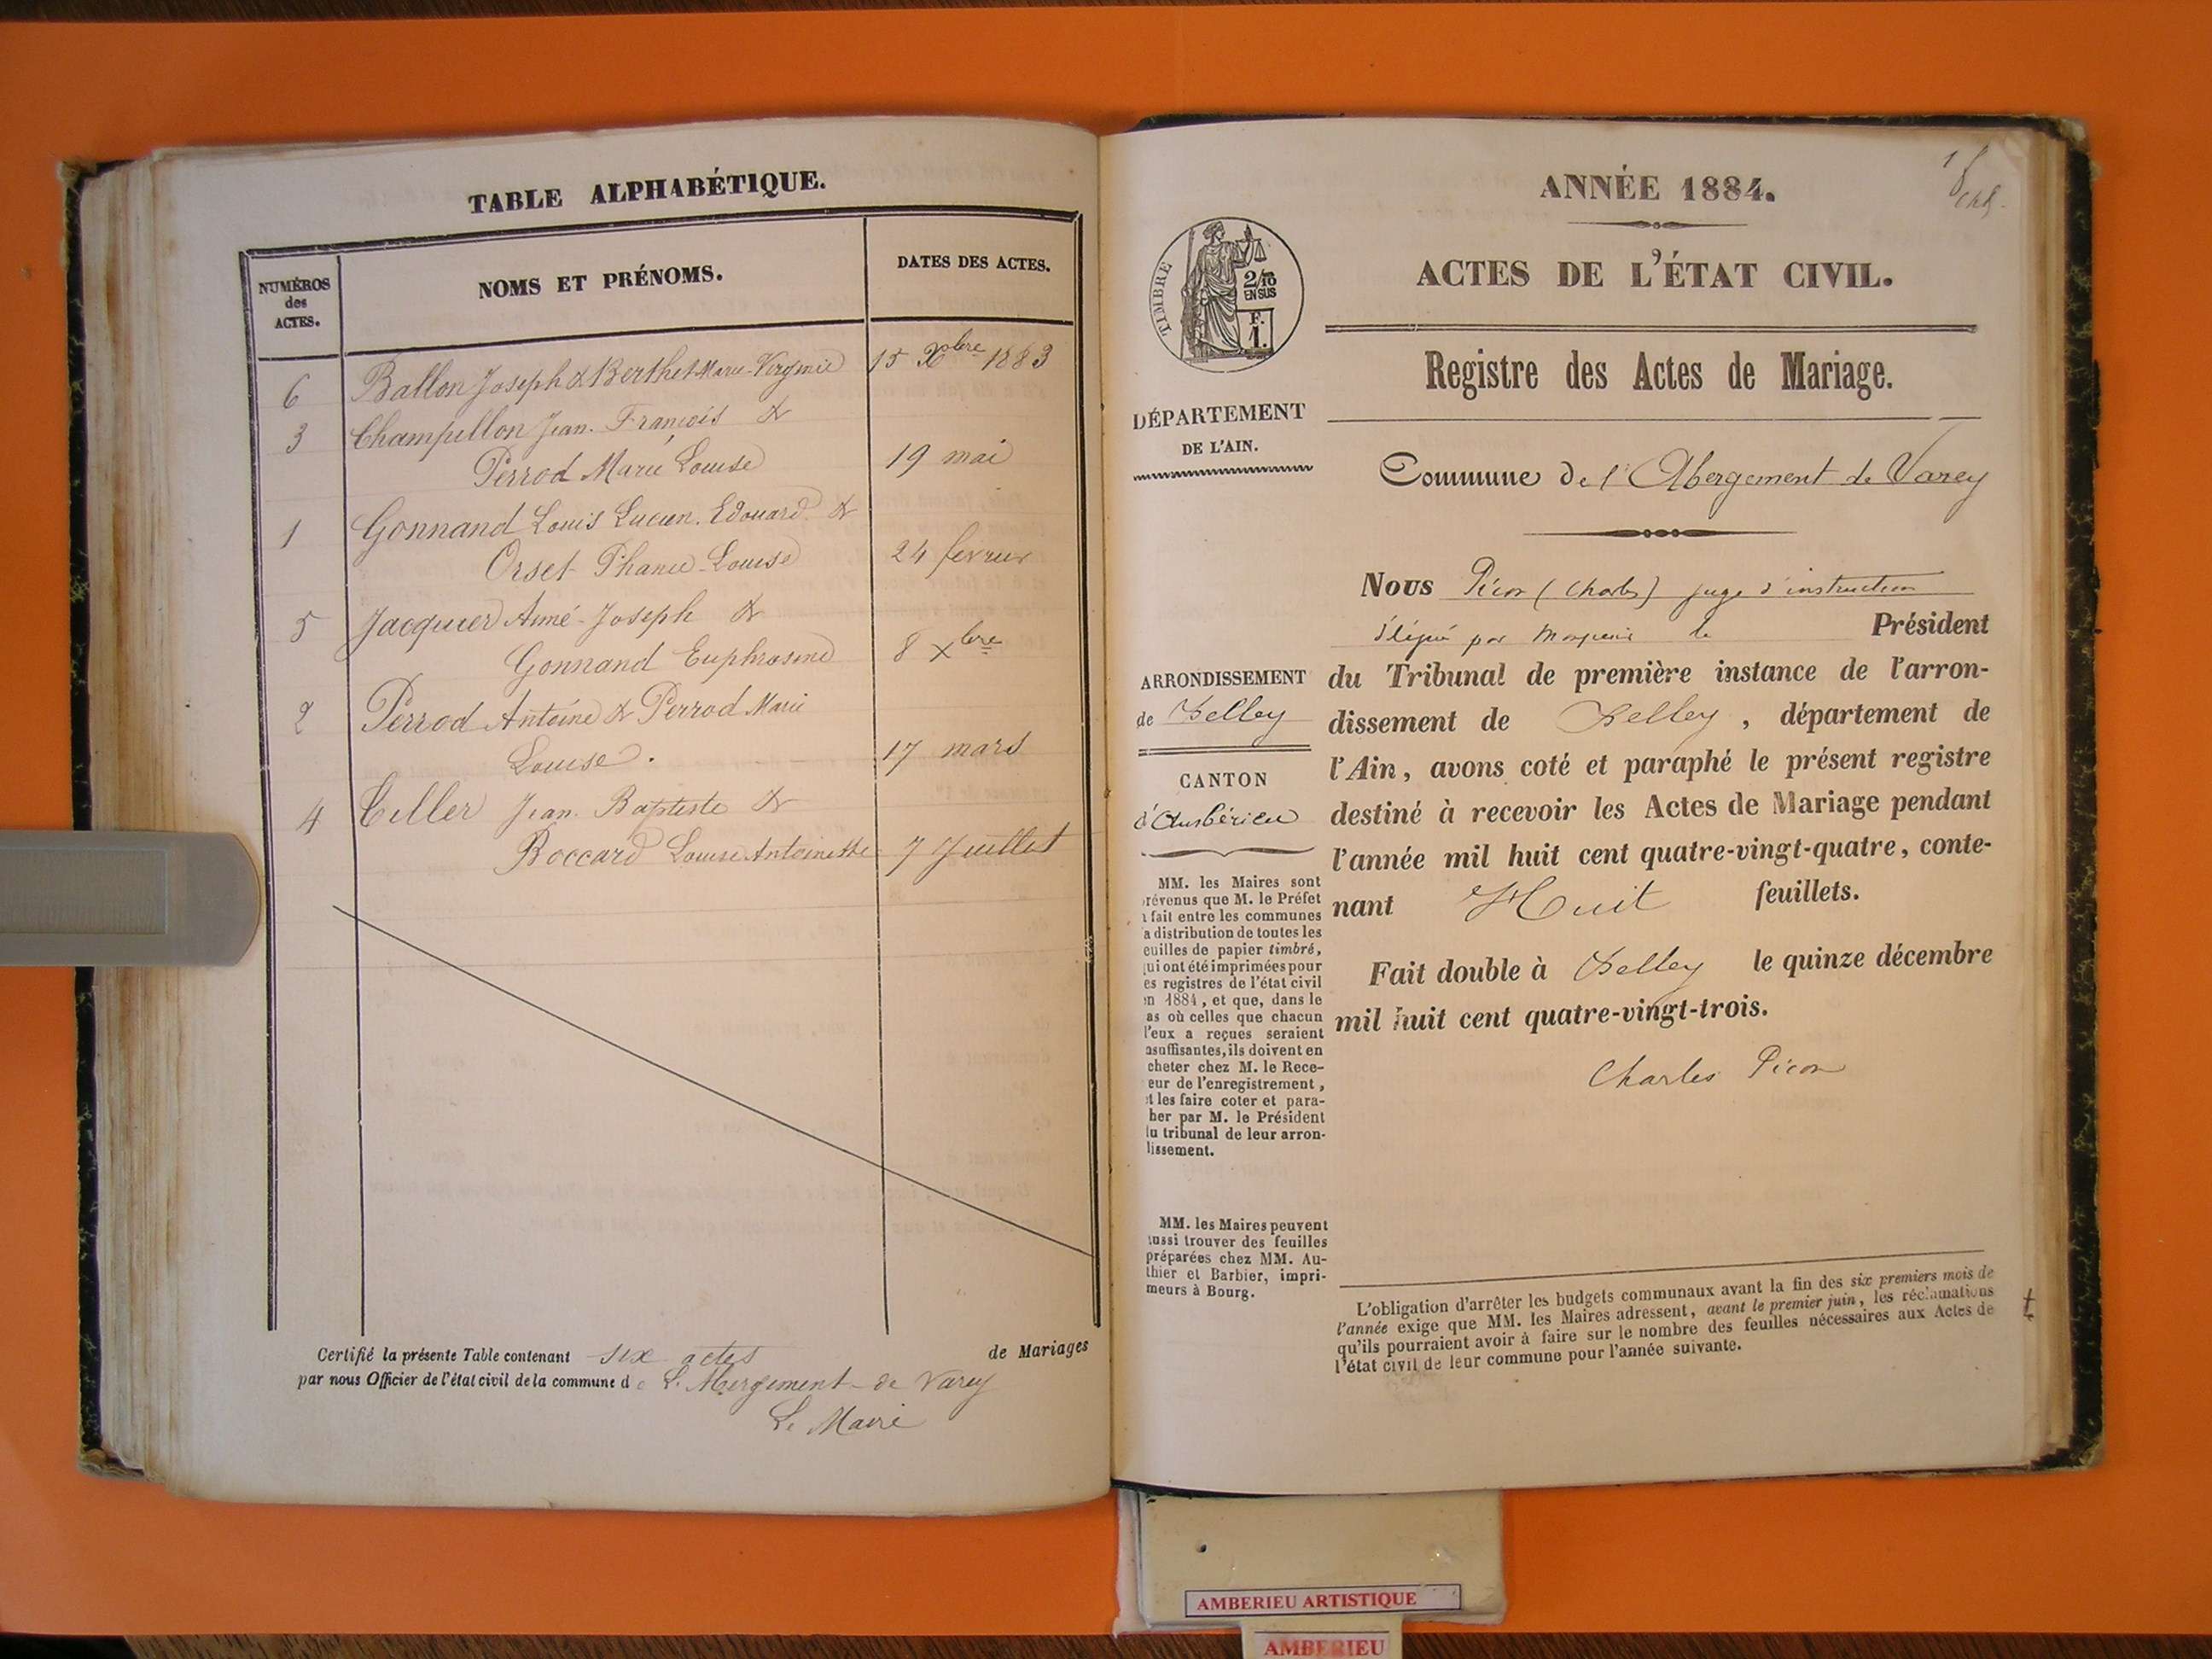 TABLE ALPHABÉTIQUE.
NUMÉROS
des
ACTES.
NOMS ET PRÉNOMS.
DATES DES ACTES.
6 Ballon Joseph & Berthet Marie-Virginie 15 Xbre 1883
3 Champillon Jean-François &
Perrod Marie Louise 19 mai
1 Gonnand Louis Lucien Edouard &
Orset Phanie-Louise 24 fevrier
5 Jacquier Aimé-Joseph &
Gonnand Euphrasine 8 Xbre
2 Perrod Antoine & Perrod Marie
Louise. 17 mars
4 Tiller Jean-Baptiste &
Boccard Louise Antoinette 7 Juillet
Certifié la présente Table contenant six actes de Mariages
par nous Officier de l'état civil de la commune de L'Abergement-de Varey
Le Maire
1
8
ANNÉE 1884.
ACTES DE L'ÉTAT CIVIL.
TIMBRE
2/10
EN SUS
F.
1.
Registre des Actes de Mariage.
DÉPARTEMENT
DE L'AIN.
Commune de l'Abergement de Varey
Nous Picon (Charles) juge d'instruction
délégué par Monsieur le Président
du Tribunal de première instance de l'arron-
dissement de Belley, département de
l'Ain, avons coté et paraphé le présent registre
destiné à recevoir les Actes de Mariage pendant
l'année mil huit cent quatre-vingt-quatre, conte-
nant Huit feuillets.
Fait double à Belley le quinze décembre
mil huit cent quatre-vingt-trois.
Charles Picon
ARRONDISSEMENT
de Belley
CANTON
d'Ambérieu
MM. les Maires sont
révenus que M. le Préfet
a fait entre les communes
a distribution de toutes les
euilles de papier timbré,
ui ont été imprimées pour
es registres de l'état civil
en 1884, et que, dans le
as où celles que chacun
l'eux a reçues seraient
nsuffisantes, ils doivent en
cheter chez M. le Rece-
eur de l'enregistrement,
et les faire coter et para-
her par M. le Président
du tribunal de leur arron-
lissement.
MM. les Maires peuvent
ussi trouver des feuilles
préparées chez MM. Au-
thier et Barbier, impri-
meurs à Bourg.
L'obligation d'arrêter les budgets communaux avant la fin des six premiers mois de
l'année exige que MM. les Maires adressent, avant le premier juin, les réclamations
qu'ils pourraient avoir à faire sur le nombre des feuilles nécessaires aux Actes de
l'état civil de leur commune pour l'année suivante.
AMBERIEU ARTISTIQUE
AMBERIEU